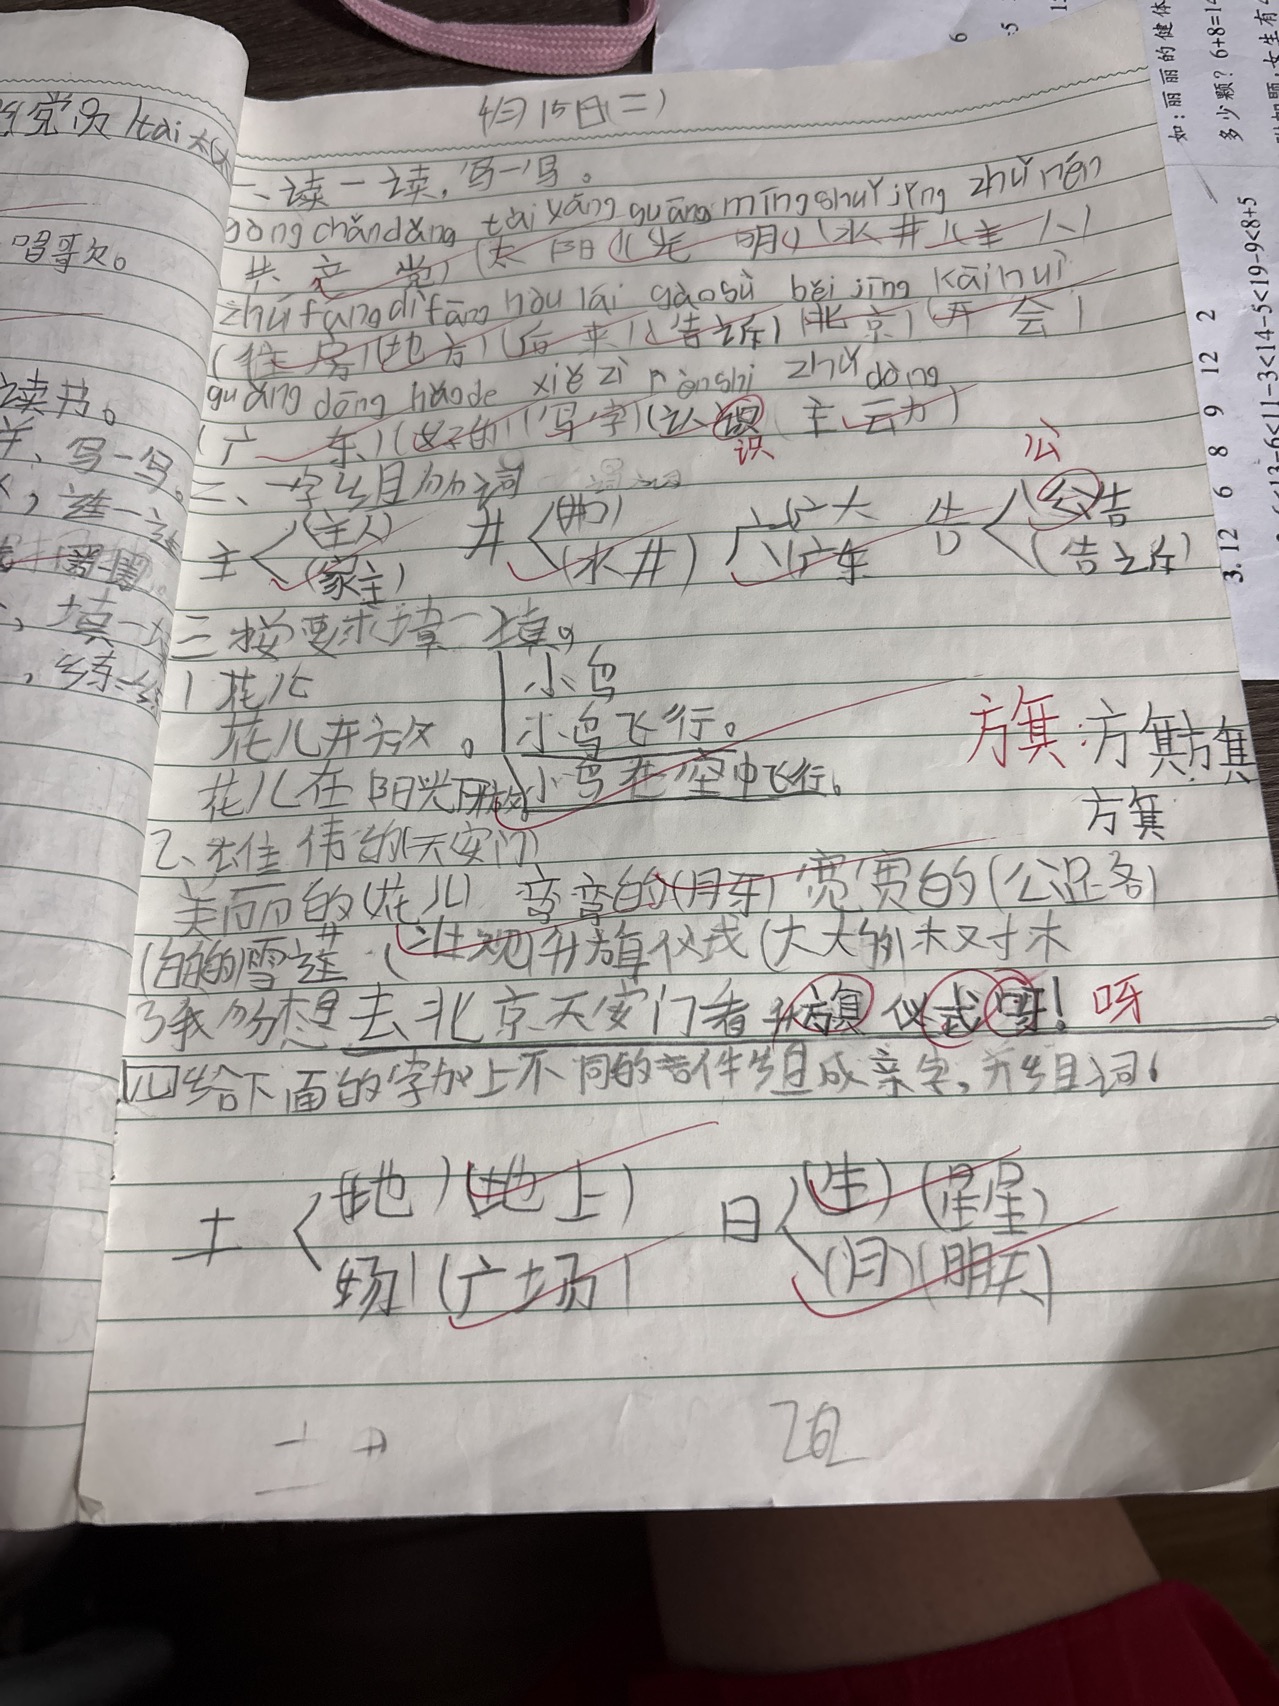 4月15日(二)
一、读一读,写一写。
gòng chǎn dǎng tài yáng guāng míng shuǐ jǐng zhǔ rén
共产党)(太阳)(光明)(水井)(主人)
zhù fáng dì fāng hòu lái gào sù běi jīng kāi huì
(住房)(地方)(后来)(告诉)(北京)(开会)
guǎng dōng hǎo de xiě zì rèn shi zhǔ dòng
(广东)(好的)(写字)(认识 主动)
识
公
二、一字组两词
主 (主人) 井 (井口) 广 广大 告 (公告
(家主) (水井) 广东 (告诉)
三按要求填一填。
1花儿 小鸟
花儿开放。 小鸟飞行。
花儿在阳光开放 小鸟在空中飞行。
方旗 方旗 方旗
方旗
2、雄伟的(天安门)
美丽的(花儿) 弯弯的(月牙) 宽宽的(公路)
(白的)雪莲 (壮观)升旗仪式(大大的)木对木
3我多想去北京天安门看升旗仪式呀! 呀
四给下面的字加上不同的部件组成亲字,并组词。
土 (地)(地上) 日 (生)(星星)
场)(广场) (月)(明天)
唱哥欠。
读书。
写一写。
连一连
填一填
3. 12 6 8 9 12 2
如:丽丽的健体
多少颗?6+8=14
<11-3<14-5<19-9<8+5